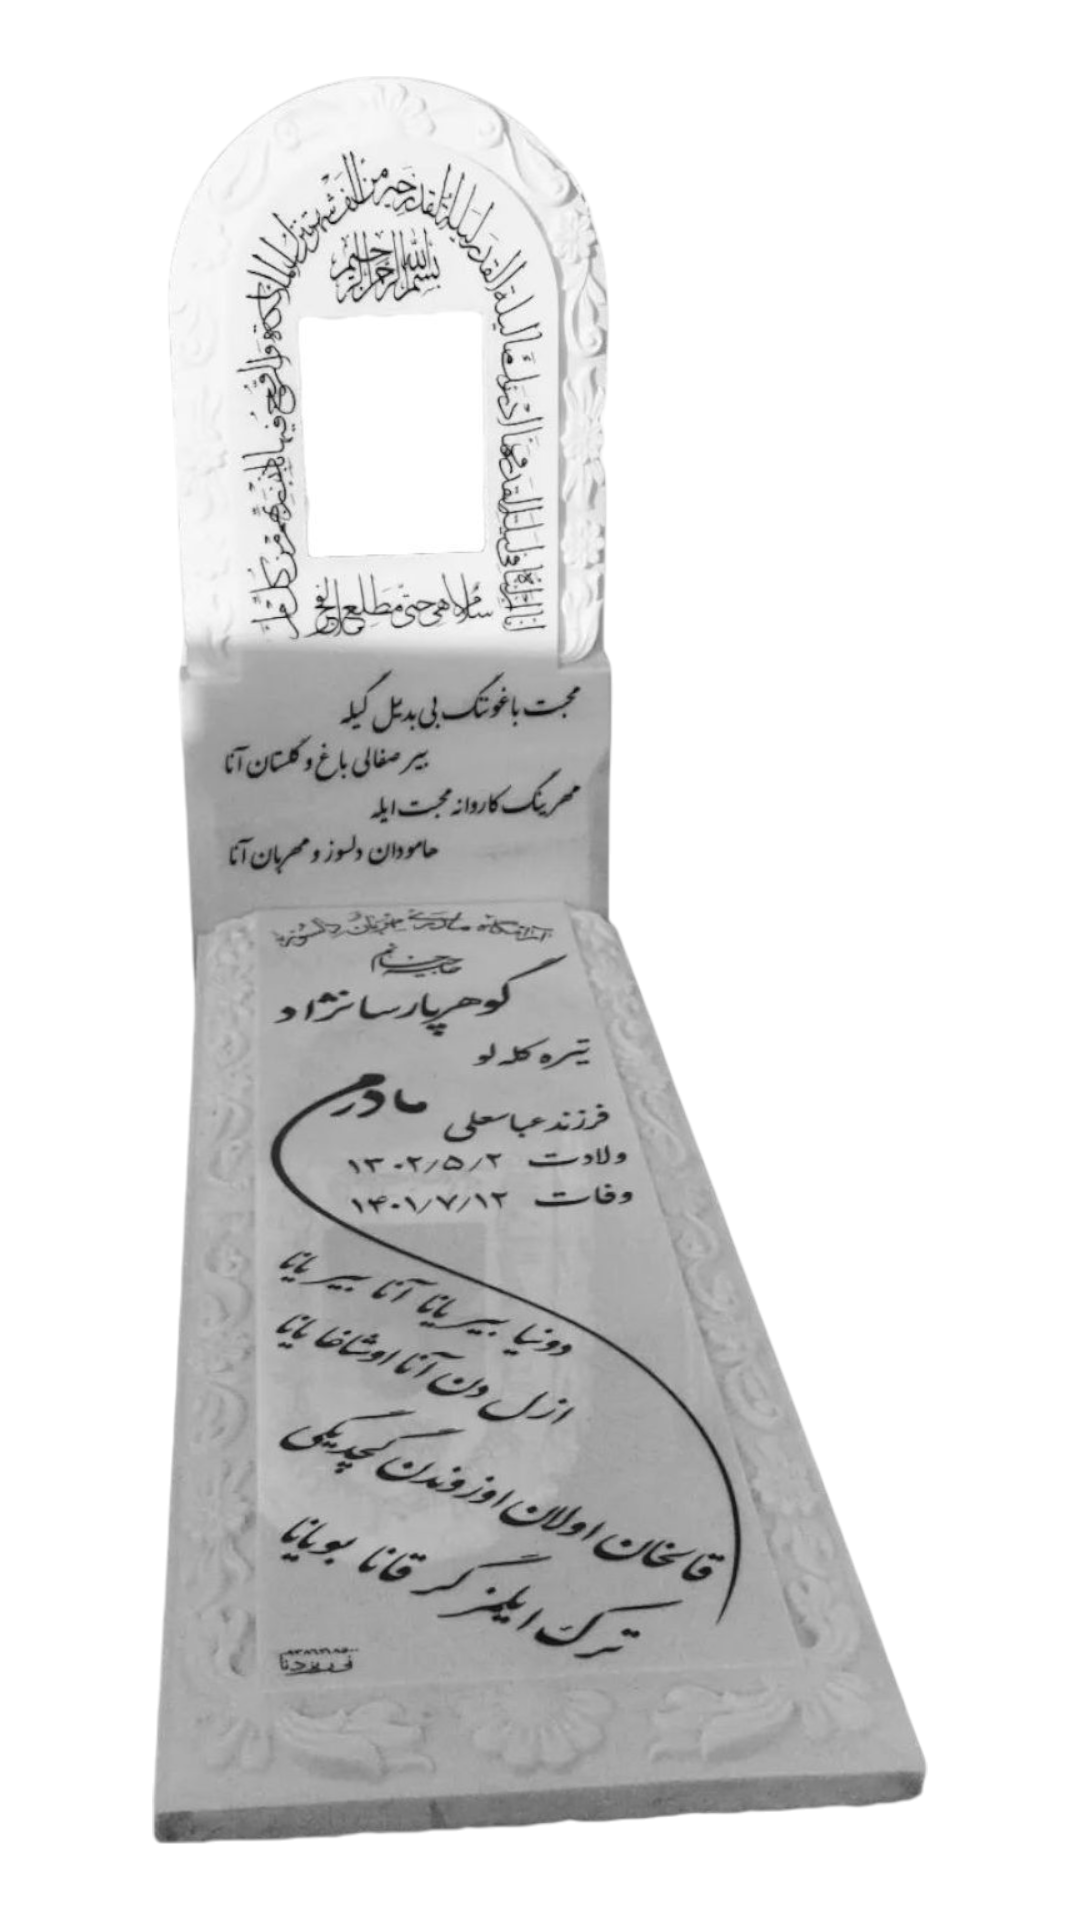 بسم الله الرحمن الرحیم
انا انزلناه فی لیلة القدر وما ادراک ما لیلة القدر لیلة القدر خیر من الف شهر تنزل الملائکة والروح فیها باذن ربهم من کل امر
سلام هی حتی مطلع الفجر
محبت باغونگ بی بدیل گیله
بیر صفالی باغ و گلستان آنا
مهرینگ کاروانه محبت ایله
هامودان دلسوز و مهربان آنا
آرامگاه مادری مهربان و دلسوز
حاجیه خانم
گوهر پارسانژاد
تیره کله لو
مادرم
فرزند عباسعلی
ولادت ۱۳۰۲/۵/۲
وفات ۱۴۰۱/۷/۱۲
دونیا بیر یانا آنا بیر یانا
ازل دن آنا اوشاخا یانا
قالخان اولان اوزوندن گچدیکی
ترک ایلمز گر قانا بویانا